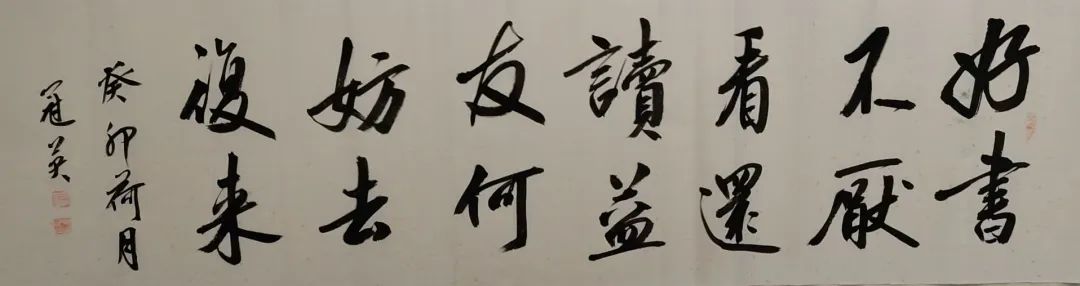 好書
不厭
看還
讀益
友何
妨去
復来
癸卯荷月
冠英